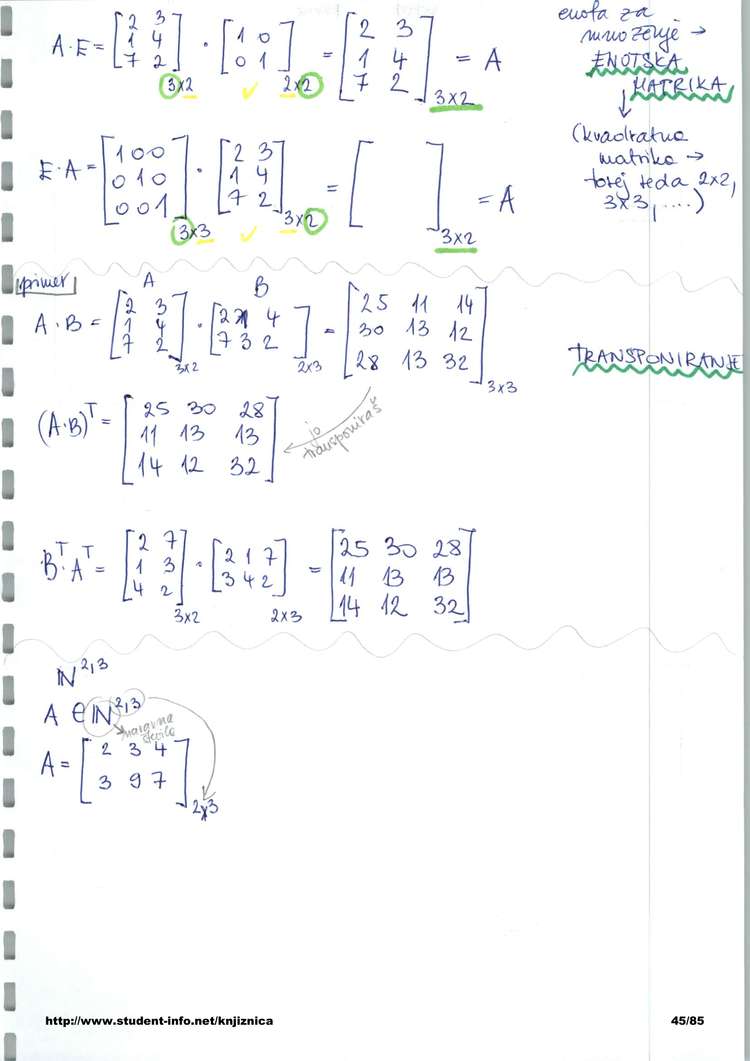 A·E = [2 3; 1 4; 7 2] 3x2 · [1 0; 0 1] 2x2 = [2 3; 1 4; 7 2] 3x2 = A
enota za
množenje →
ENOTSKA
MATRIKA
↓
(kvadratna
matrika →
torej reda 2x2,
3x3, ....)
E·A = [1 0 0; 0 1 0; 0 0 1] 3x3 · [2 3; 1 4; 7 2] 3x2 = [ ] 3x2 = A
primer
A B
A·B = [2 3; 1 4; 7 2] 3x2 · [2 1 4; 7 3 2] 2x3 = [25 11 14; 30 13 12; 28 13 32] 3x3
TRANSPONIRANJE
(A·B)ᵀ = [25 30 28; 11 13 13; 14 12 32]
jo
transponiraš
Bᵀ·Aᵀ = [2 7; 1 3; 4 2] 3x2 · [2 1 7; 3 4 2] 2x3 = [25 30 28; 11 13 13; 14 12 32]
ℕ²,³
A ∈ ℕ²,³
naravna
števila
A = [2 3 4; 3 9 7] 2x3
http://www.student-info.net/knjiznica
45/85